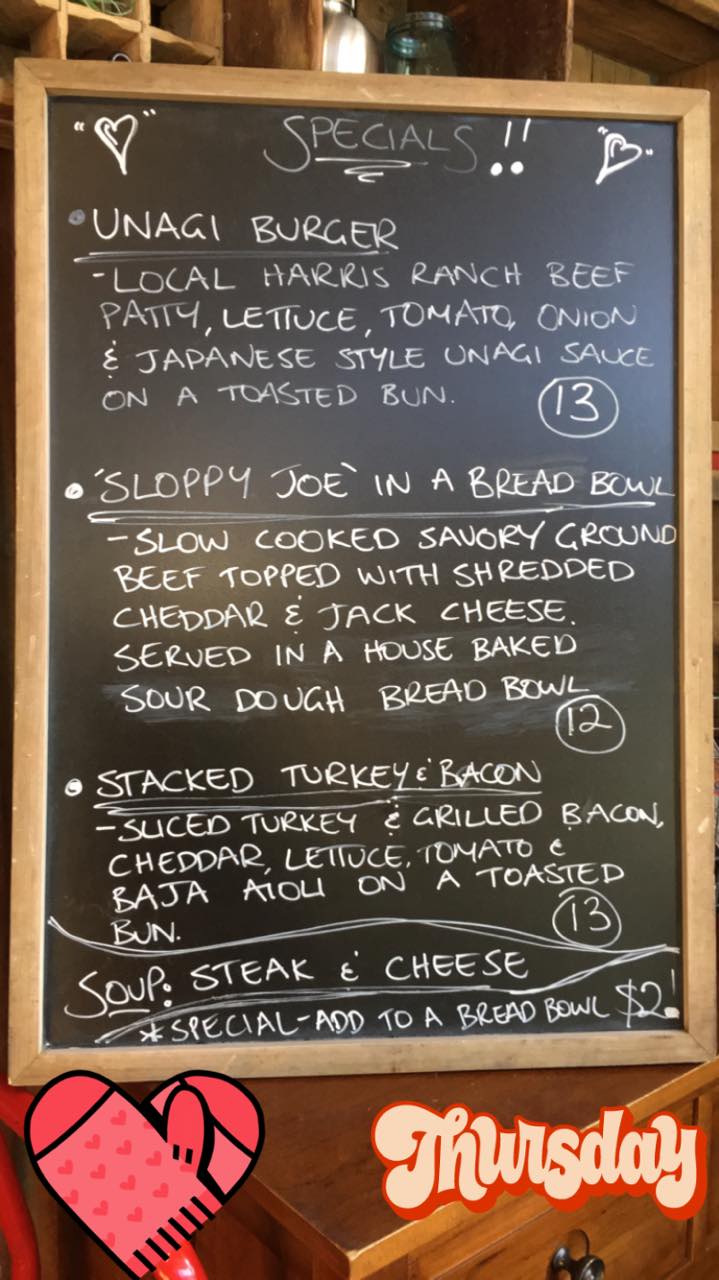 SPECIALS!!
UNAGI BURGER
- LOCAL HARRIS RANCH BEEF
PATTY, LETTUCE, TOMATO, ONION
& JAPANESE STYLE UNAGI SAUCE
ON A TOASTED BUN.
13
'SLOPPY JOE' IN A BREAD BOWL
- SLOW COOKED SAVORY GROUND
BEEF TOPPED WITH SHREDDED
CHEDDAR & JACK CHEESE.
SERVED IN A HOUSE BAKED
SOUR DOUGH BREAD BOWL
12
STACKED TURKEY & BACON
- SLICED TURKEY & GRILLED BACON,
CHEDDAR, LETTUCE, TOMATO &
BAJA AIOLI ON A TOASTED
BUN.
13
SOUP: STEAK & CHEESE
*SPECIAL-ADD TO A BREAD BOWL $2!
Thursday